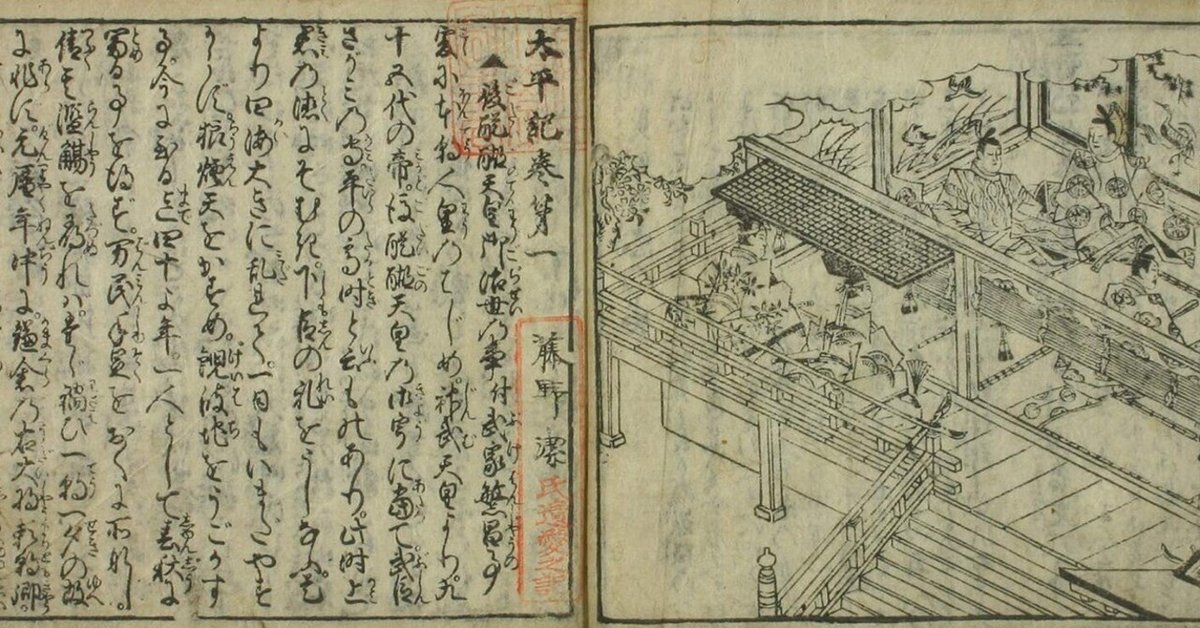 太平記巻第一
▲後醍醐天皇御治世乃事付武家繁昌事
爰に本朝人皇乃はじめ。神武天皇より。九
十五代の帝。後醍醐天皇乃御宇に當て。武臣
さがミ乃守平の高時と云ものあり。此時上
君乃徳にそむき。下臣の礼をうしなふ。是
より四海大きに乱れて。一日もいまだやす
からず。狼煙天をかすめ。鯢波地をうごかす
事。今にいたる迄四十よ年。一人として春秋に
冨る事を得ず。万民手足をおくに所なし。
倩其濫觴を尋れバ。禍ひ一朝一夕の故
に非ず。元暦年中に。鎌倉乃右大将頼朝卿。
藤野潔
氏遺愛之記